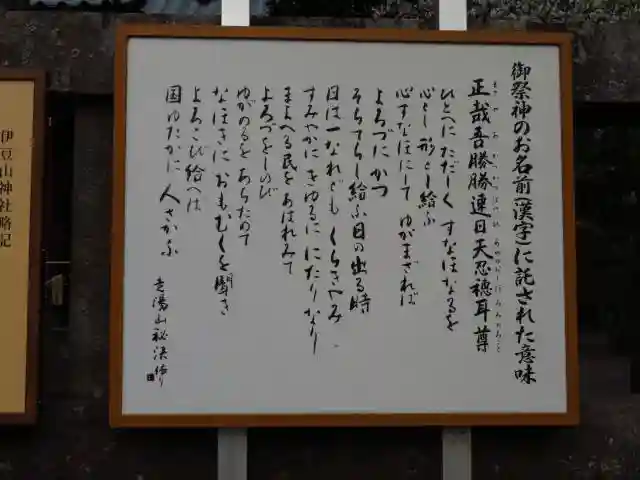 御祭神のお名前(漢字)に託された意味
正哉吾勝勝速日天忍穂耳尊
ひとへに ただしく すなほなるを
心とし 形とし給ふ
心すなほにして ゆがまざれば
よろづにかつ
そらてらし給ふ日の出る時
日は一なれども くらきやみ
すみやかに きゆるに にたりなり
まよへる民を あはれみて
よろづをしのび
ゆがめるを あらためて
なほきに おもむくを聞き
よろこび給へは
国ゆたかに 人さかふ
走湯山秘訣 より
伊豆山神社略記